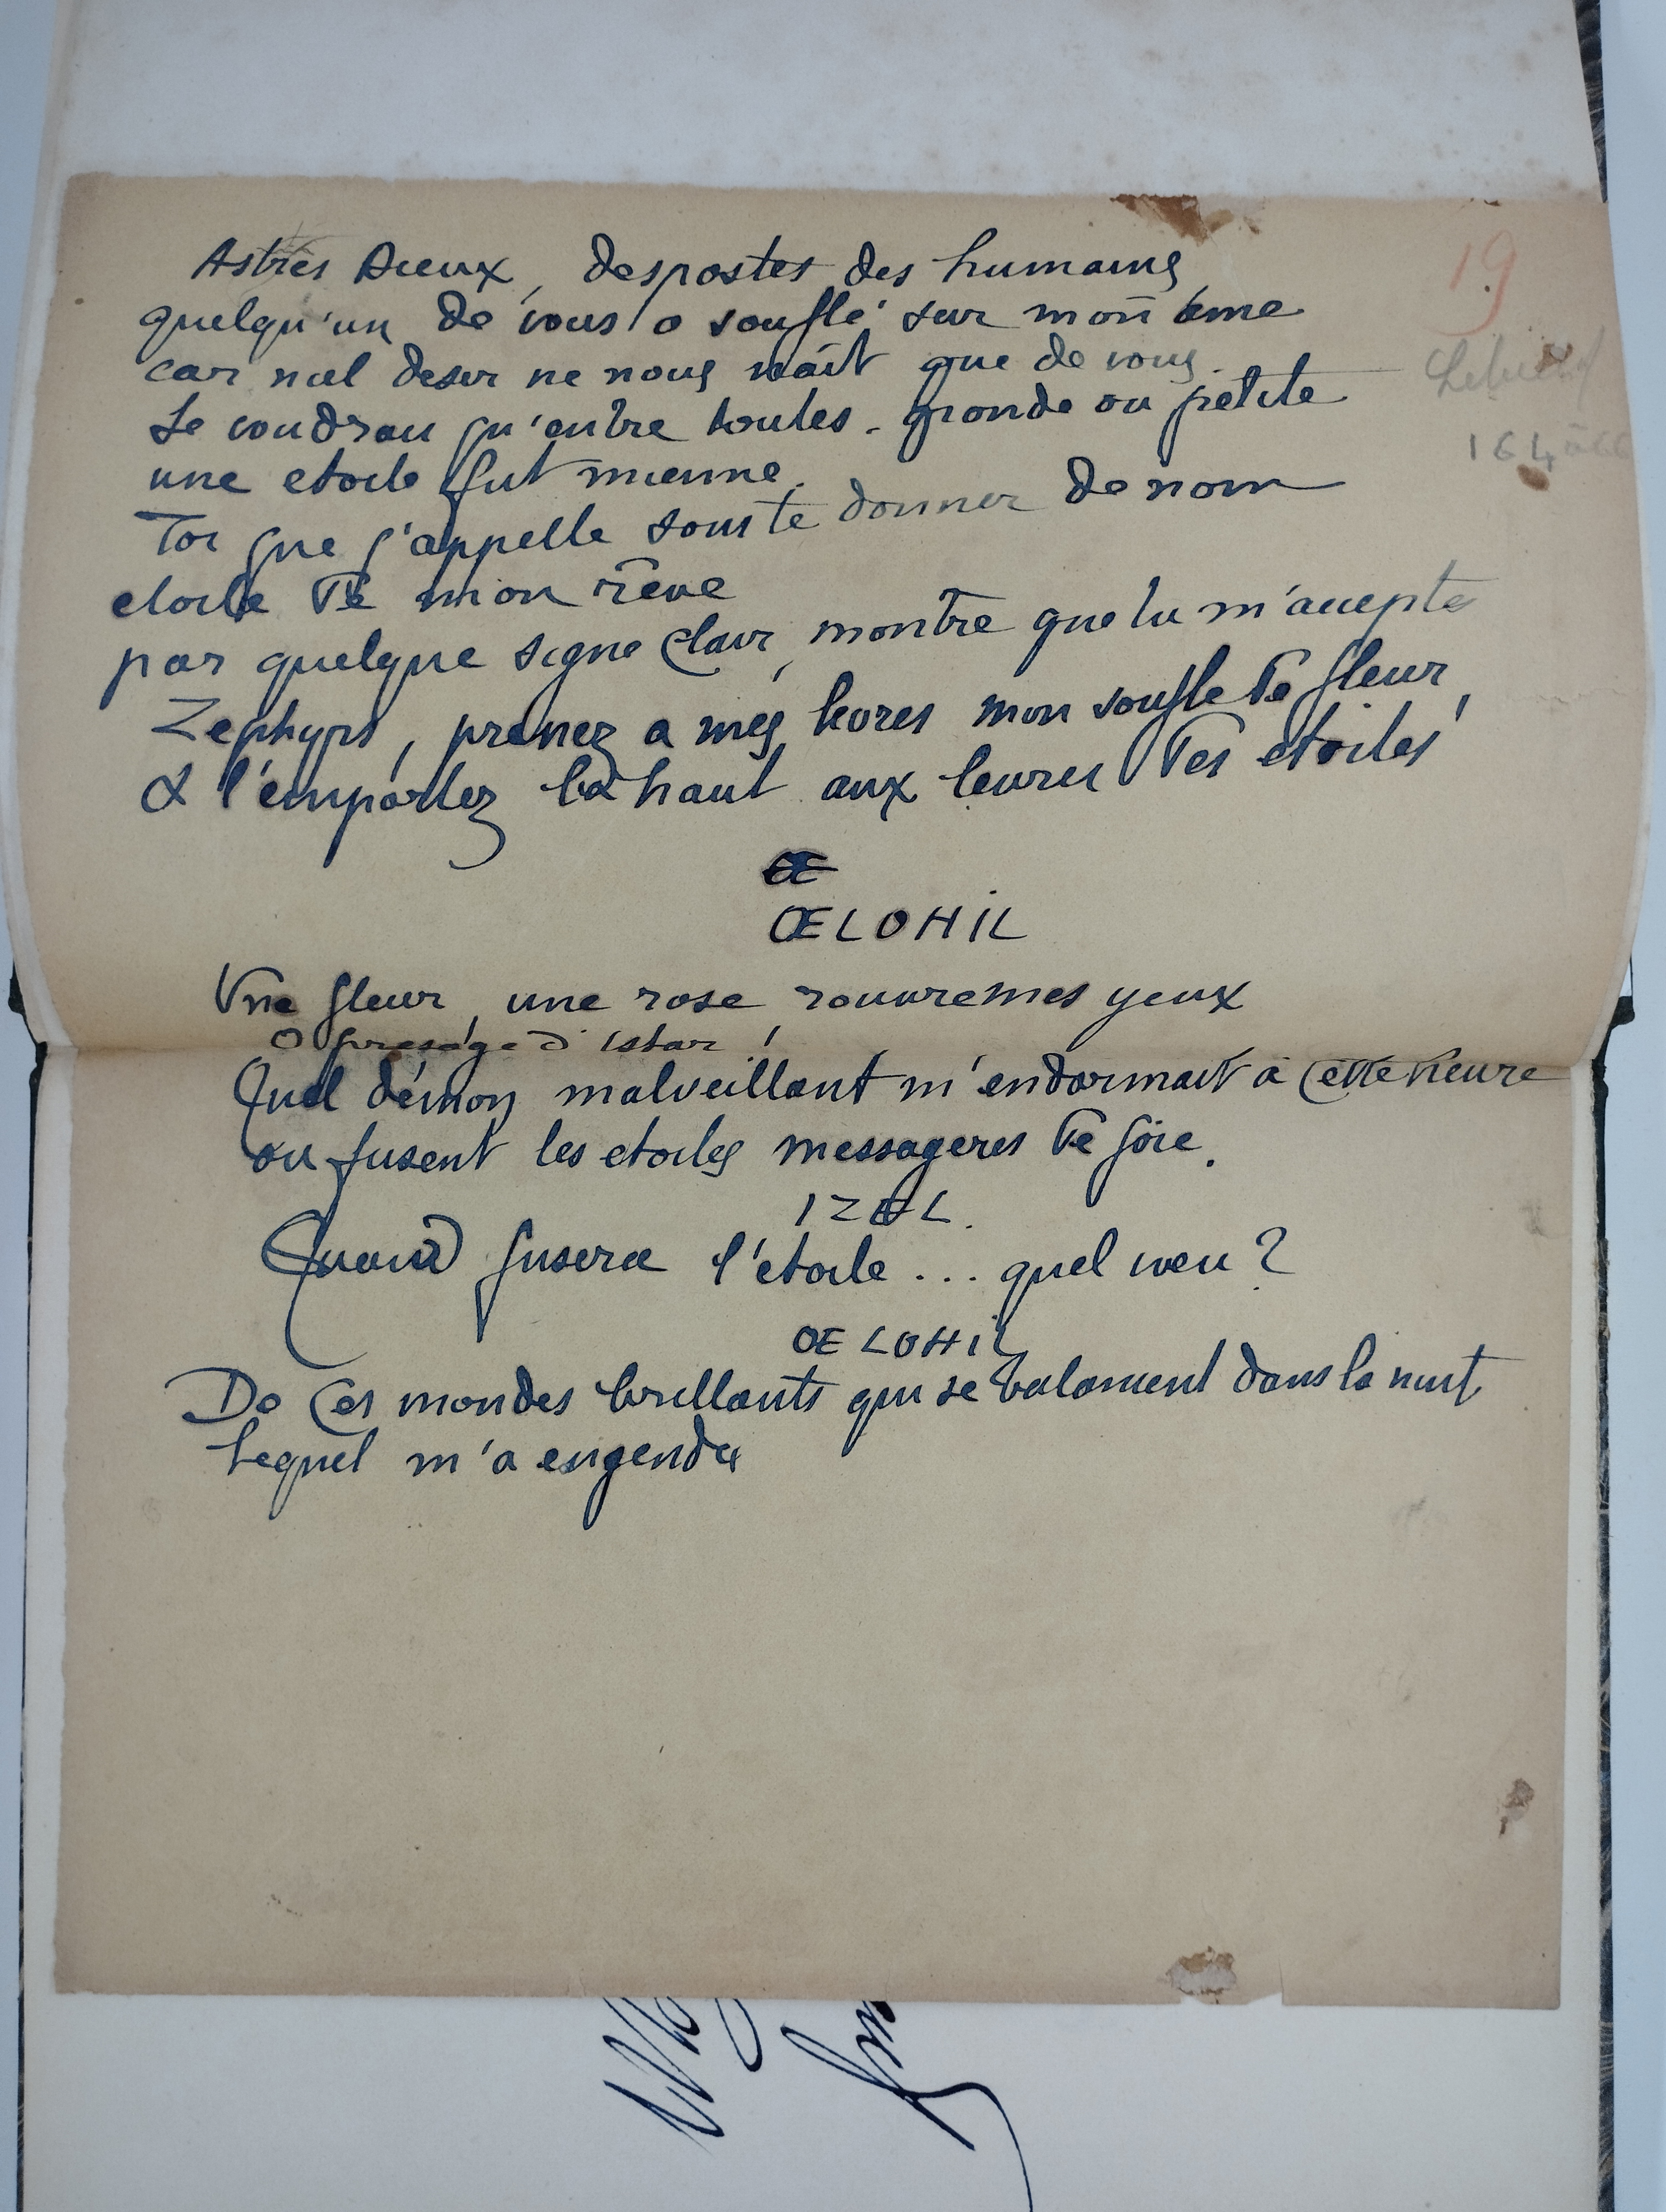 Astres Dieux, despostes des humains
19
quelqu'un de vous a soufflé sur mon ame
car nul desir ne nous naît que de vous.
Je voudrais qu'entre toutes - grande ou petite
164
une etoile fut mienne.
Toi que j'appelle sans te donner de nom
etoile de mon rêve
par quelque signe clair, montre que tu m'acceptes
Zephyrs, prenez a mes levres mon soufle de fleur,
& l'emportez là haut aux levres des etoiles
ŒLOHIL
Une fleur, une rose rouvre mes yeux
O presage d'Istar !
Quel démon malveillant m'endormait à cette heure
ou fusent les etoiles messageres de joie.
IZEL.
Quand fusera l'etoile ... quel vœu ?
OELOHIL
De ces mondes brillants qui se balancent dans la nuit
Lequel m'a engendré